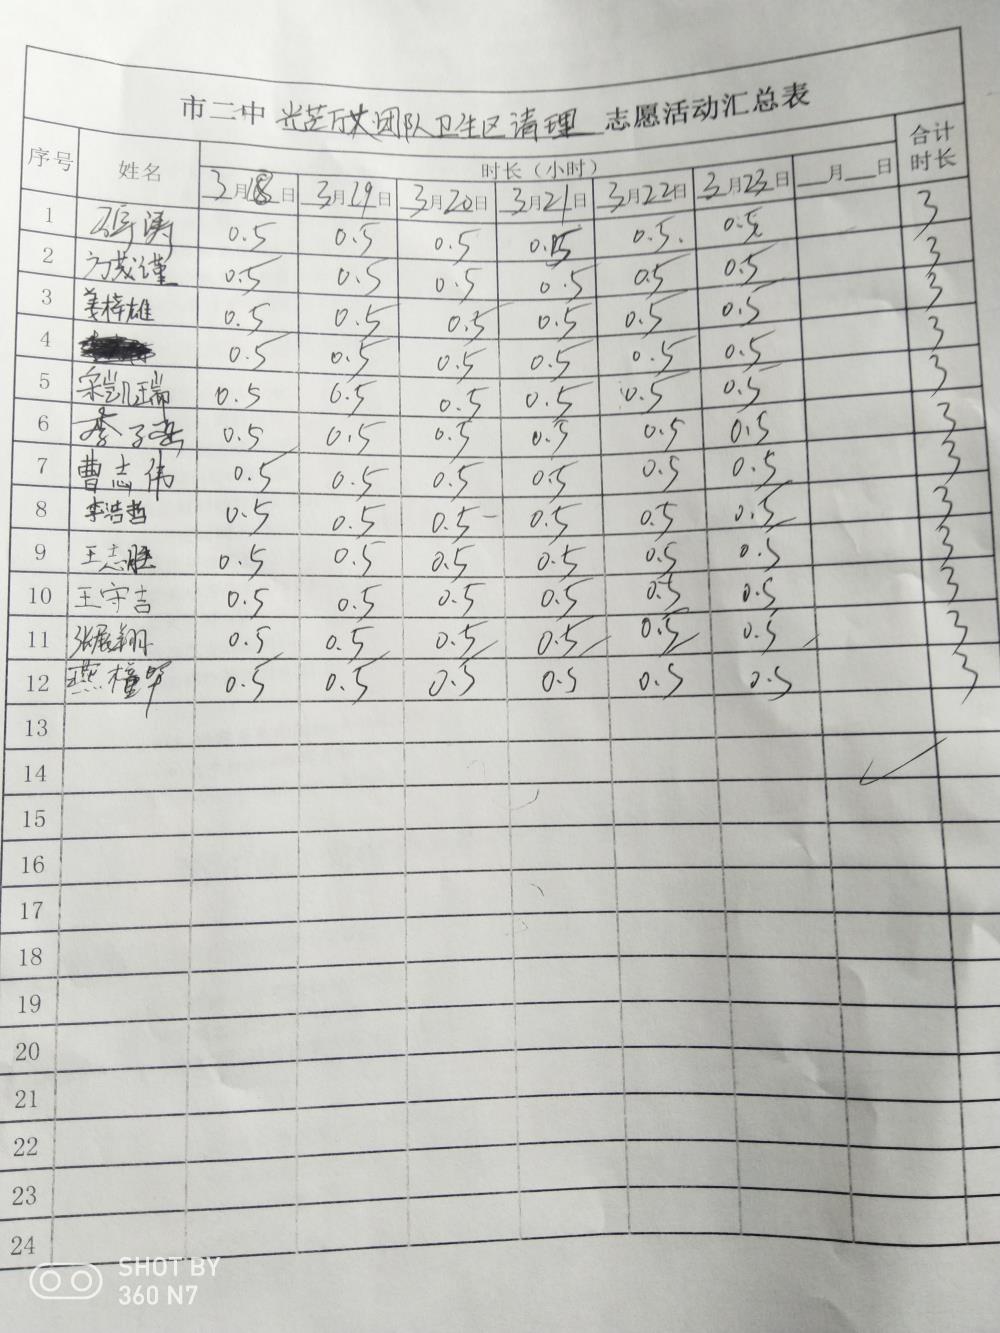 市二中 光芒万丈团队卫生区清理 志愿活动汇总表
序号 姓名 时长（小时） 合计时长
3月18日 3月19日 3月20日 3月21日 3月22日 3月23日 __月__日
1 涛 0.5 0.5 0.5 0.5 0.5 0.5 3
2 方茂谨 0.5 0.5 0.5 0.5 0.5 0.5 3
3 姜梓雄 0.5 0.5 0.5 0.5 0.5 0.5 3
4 0.5 0.5 0.5 0.5 0.5 0.5 3
5 宋凯瑞 0.5 0.5 0.5 0.5 0.5 0.5 3
6 李子 0.5 0.5 0.5 0.5 0.5 0.5 3
7 曹志伟 0.5 0.5 0.5 0.5 0.5 0.5 3
8 李浩哲 0.5 0.5 0.5 0.5 0.5 0.5 3
9 王志胜 0.5 0.5 0.5 0.5 0.5 0.5 3
10 王守吉 0.5 0.5 0.5 0.5 0.5 0.5 3
11 张展翔 0.5 0.5 0.5 0.5 0.5 0.5 3
12 燕 0.5 0.5 0.5 0.5 0.5 0.5 3
13
14
15
16
17
18
19
20
21
22
23
24
SHOT BY
360 N7